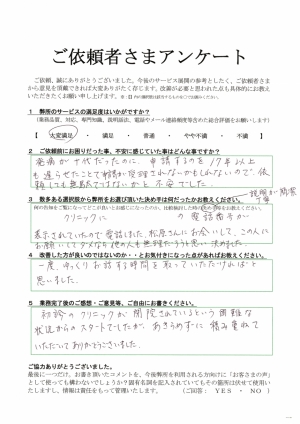 ご依頼者さまアンケート
ご依頼、誠にありがとうございました。今後のサービス展開の参考としたく、ご依頼者さま
から意見を頂戴できれば大変ありがたく存じます。改善が必要と思われた点も具体的にお教え
いただきたくお願い申し上げます。
1 弊所のサービスの満足度はいかがですか？
（業務品質、対応、専門知識、説明訴求、電話やメール連絡頻度等含めた総合評価をお願いします）
【 大変満足 ・ 満足 ・ 普通 ・ やや不満 ・ 不満 】
2 ご依頼前にお困りだった事、不安に感じていた事はどんな事ですか？
発病が十代だったのに、申請するのを17年以上
も遅らせたことで相談が受理されないかもしれないので、依
頼しても無駄ではないかと不安でした。
3 数多ある選択肢から弊所をお選び頂いた決め手は何だったかお教えください。
説明が簡潔
丁寧
クリニックに の電話番号が
表示されていたので電話しました。松原さんにお会いして、この人に
お願いしてダメなら他の人も無理だろうと思い決めました。
4 改善した方が良いのではないのか・・とお気付きになった点があればお教えください。
一度、ゆっくりお話する時間を取っていただければと
思いました。
5 業務完了後のご感想・ご意見等、ご自由にお書きください。
初診のクリニックが閉院されているという困難な
状況からのスタートでしたが、あきらめずに積み重ねて
いただいてありがとうございました。
ご協力ありがとうございました。
最後に一つだけ。お書き頂いたコメントを、今後弊所を利用される方向けに「お客さまの声」
として使っても構わないでしょうか？固有名詞を記入されていてもその箇所は伏せて使用い
たしますし、情報は責任をもって管理いたします。 （ご回答： YES ・ NO ）